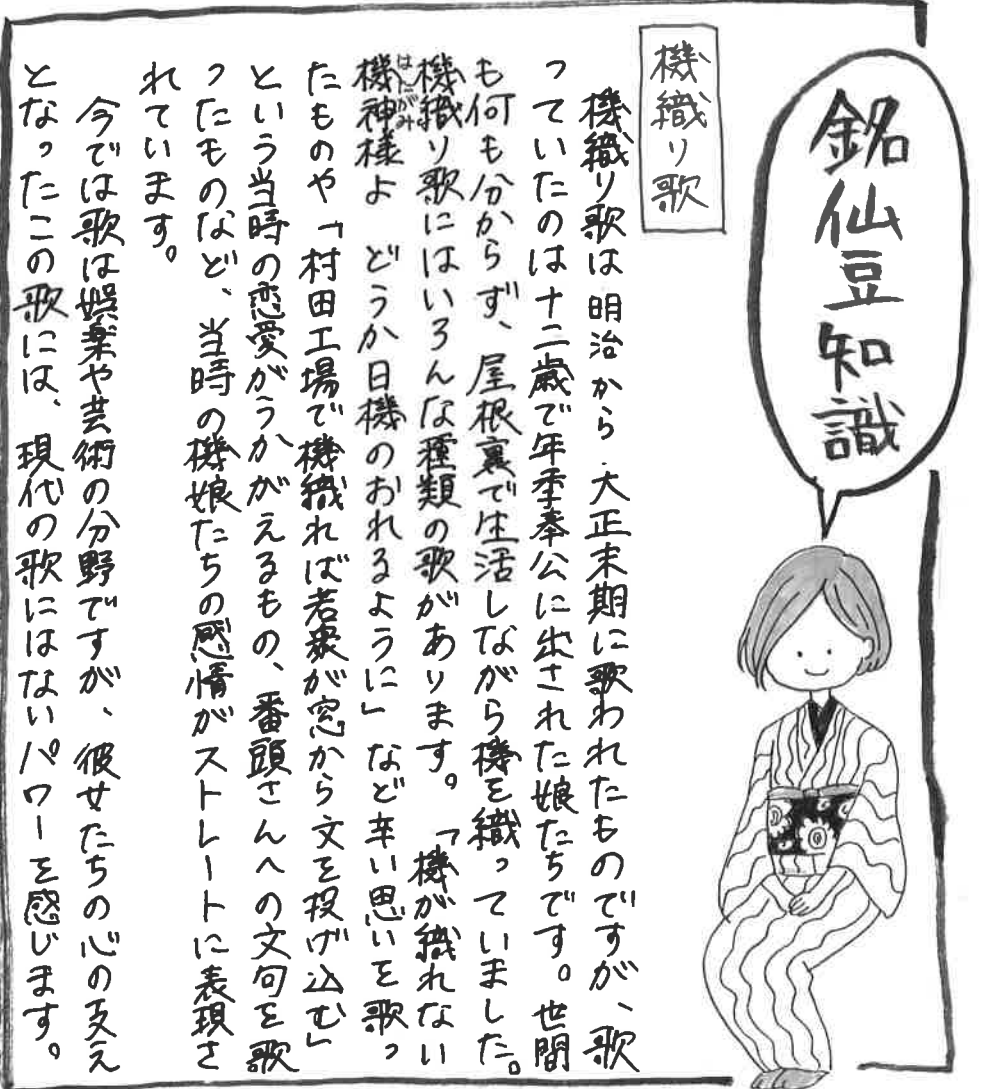 銘仙豆知識
機織り歌
機織り歌は明治から大正末期に歌われたものですが、歌
っていたのは十二歳で年季奉公に出された娘たちです。世間
も何も分からず、屋根裏で生活しながら機を織っていました。
機織り歌にはいろんな種類の歌があります。「機が織れない
機神様よ どうか日機のおれるように」など辛い思いを歌っ
はたがみ
たものや「村田工場で機織れば若衆が窓から文を投げ込む」
という当時の恋愛がうかがえるもの、番頭さんへの文句を歌
ったものなど、当時の機娘たちの感情がストレートに表現さ
れています。
今では歌は娯楽や芸術の分野ですが、彼女たちの心の支え
となったこの歌には、現代の歌にはないパワーを感じます。